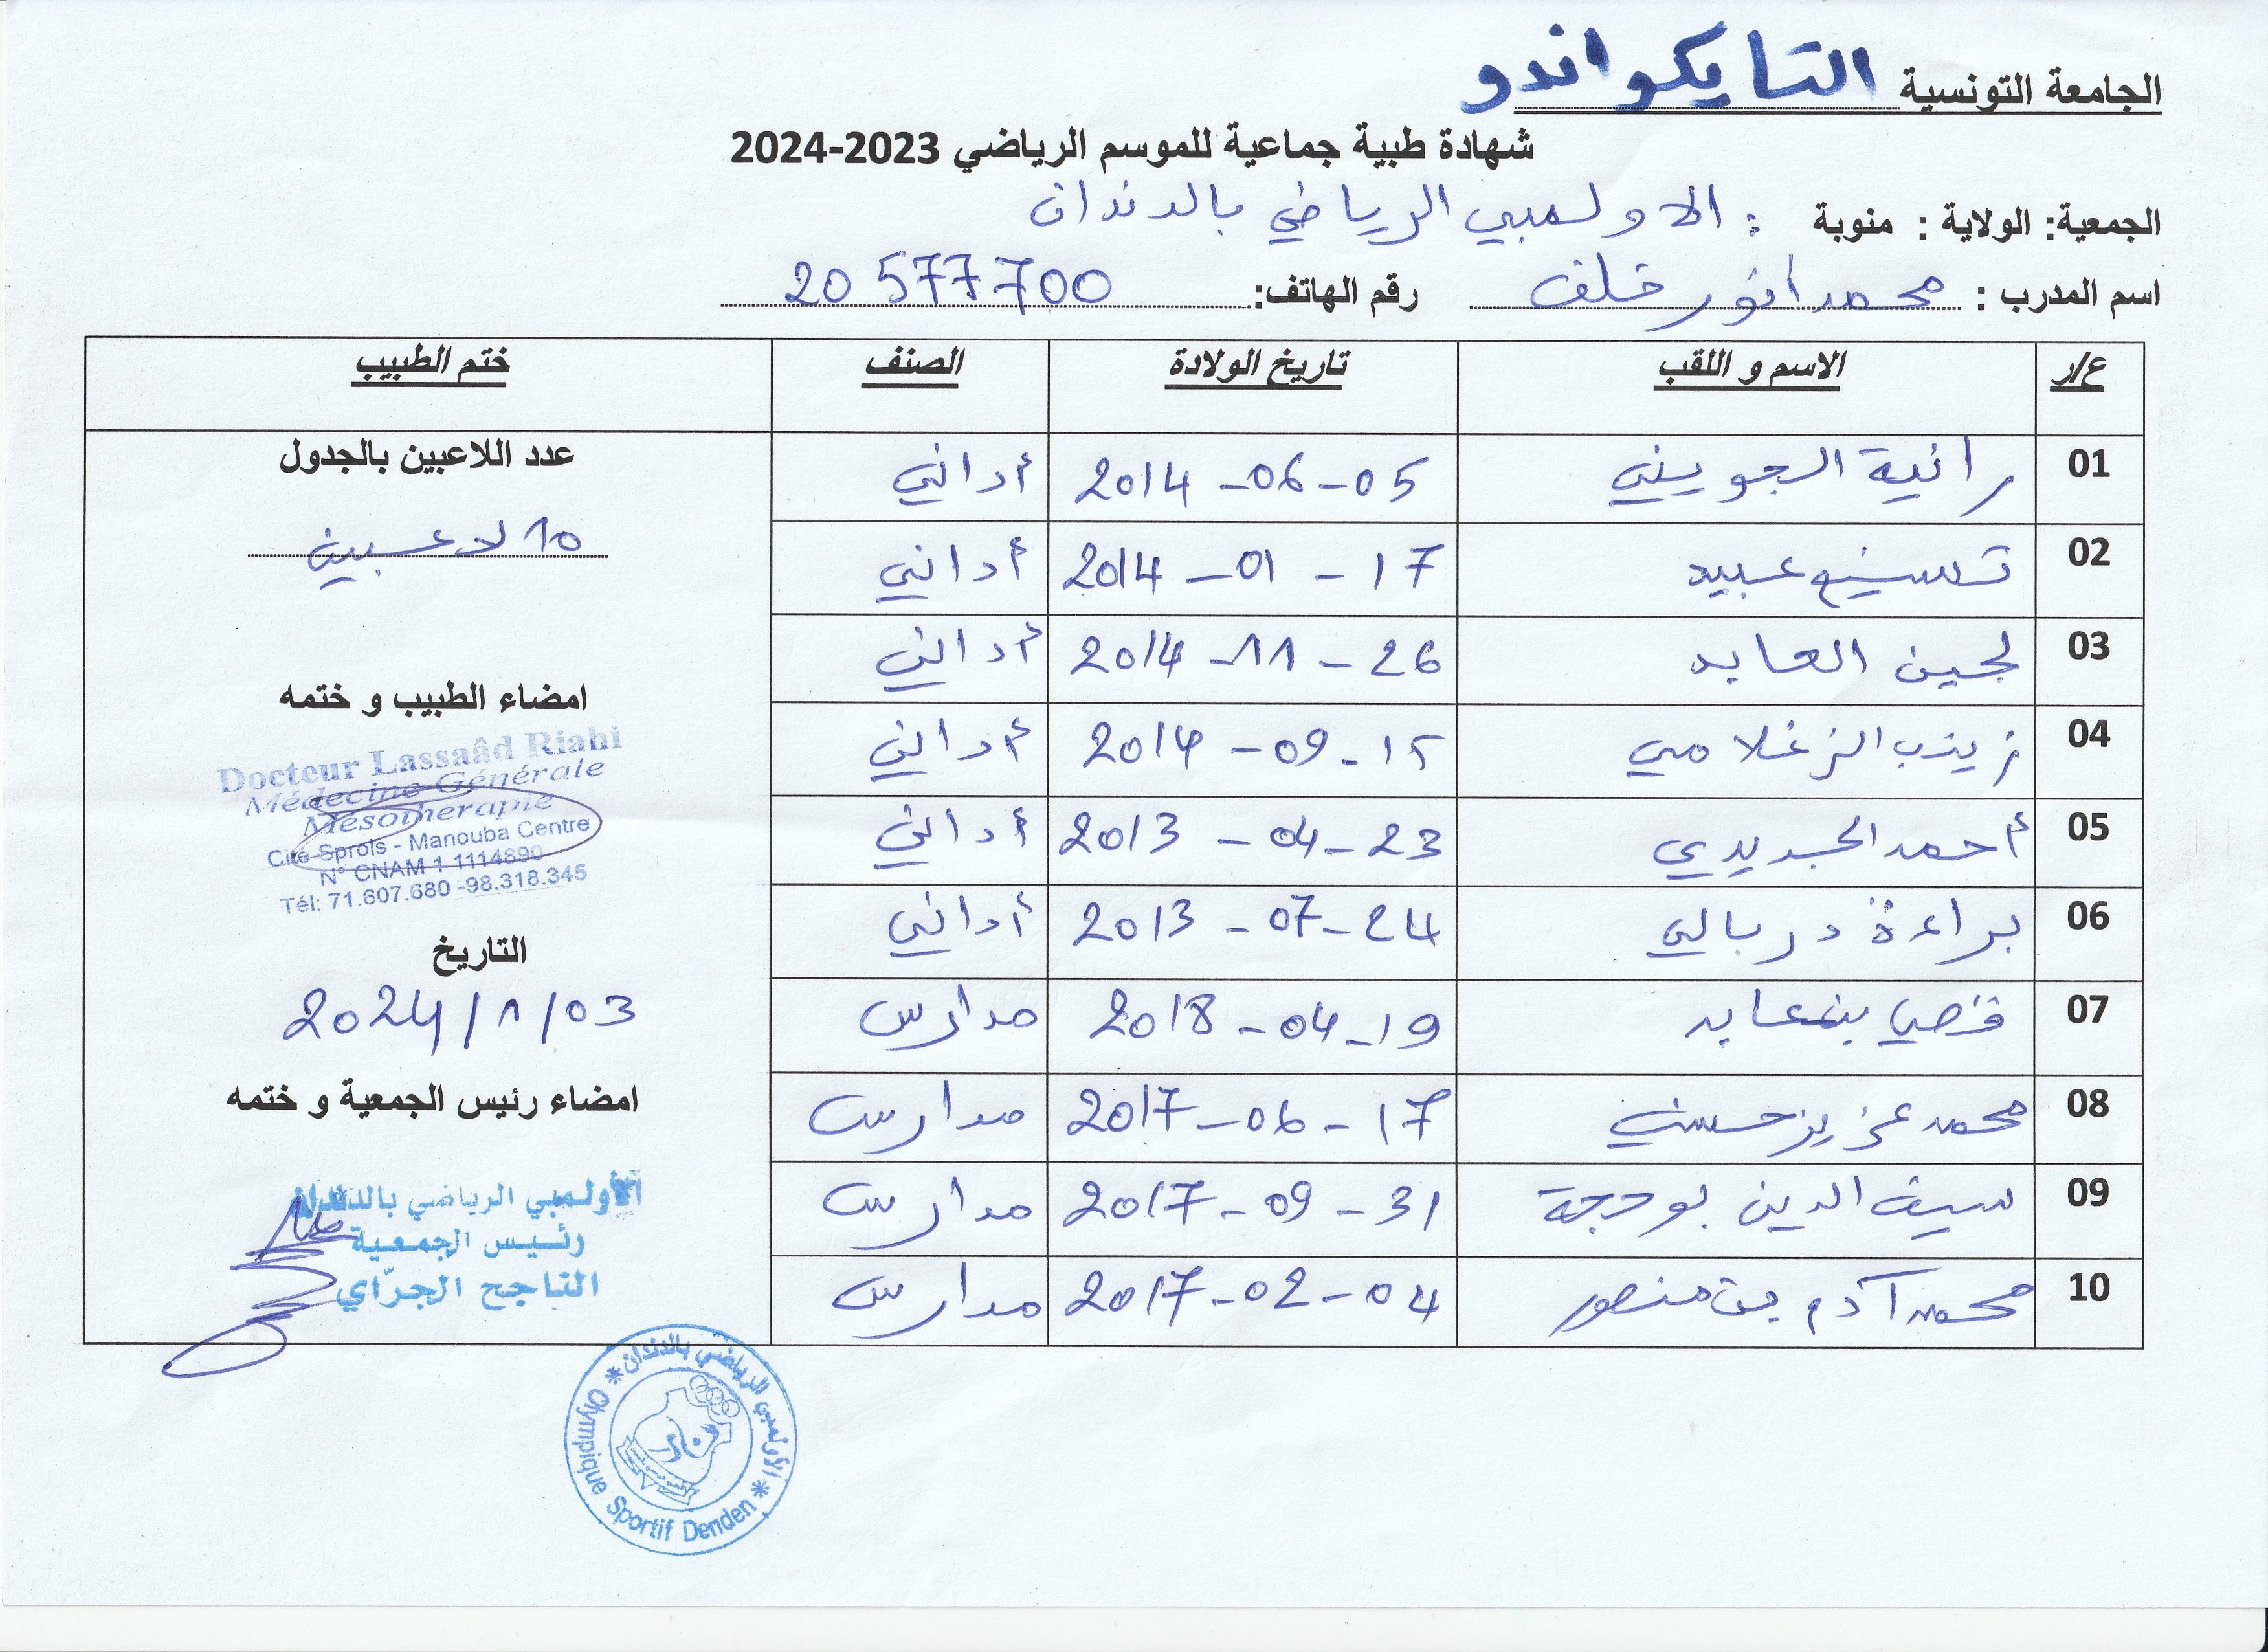 الجامعة التونسية التايكواندو
شهادة طبية جماعية للموسم الرياضي 2023-2024
الجمعية: الولاية : منوبة : الاولمبي الرياضي بالدندان
اسم المدرب : محمد انور خلف رقم الهاتف: 20 577 700
ع/ر الاسم و اللقب تاريخ الولادة الصنف ختم الطبيب
01 رانية الجويني 2014-06-05 أداني
02 تسنيم عبيد 2014-01-17 أداني
03 لجين العابد 2014-11-26 أداني
04 زينب الزغلامي 2014-09-15 أداني
05 أحمد الجديدي 2013-04-23 أداني
06 براءة دربالي 2013-07-24 أداني
07 قصي بن عابد 2018-04-19 مدارس
08 محمد عزيز حسني 2017-06-17 مدارس
09 سيف الدين بوحجة 2017-09-31 مدارس
10 محمد آدم بن منصور 2017-02-04 مدارس
عدد اللاعبين بالجدول
10 لاعبين
امضاء الطبيب و ختمه
Docteur Lassaâd Riahi
Médecine Générale
Mésotherapie
Cité Sprols - Manouba Centre
N° CNAM 1 1114890
Tél: 71.607.680 -98.318.345
التاريخ
2024/1/03
امضاء رئيس الجمعية و ختمه
الأولمبي الرياضي بالدندان
رئيس الجمعية
الناجح الجرّاي
الأولمبي الرياضي بالدندان
* Olympique Sportif Denden *